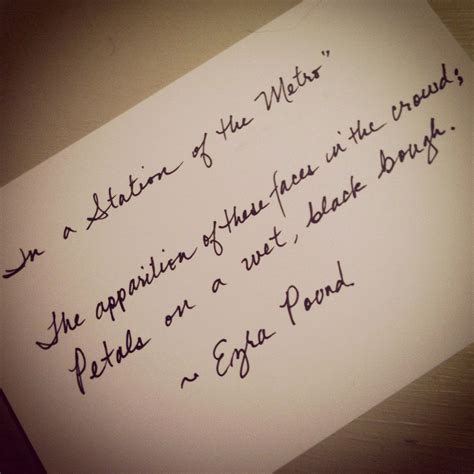 In a Station of the Metro"
The apparition of these faces in the crowd;
Petals on a wet, black bough.
~ Ezra Pound